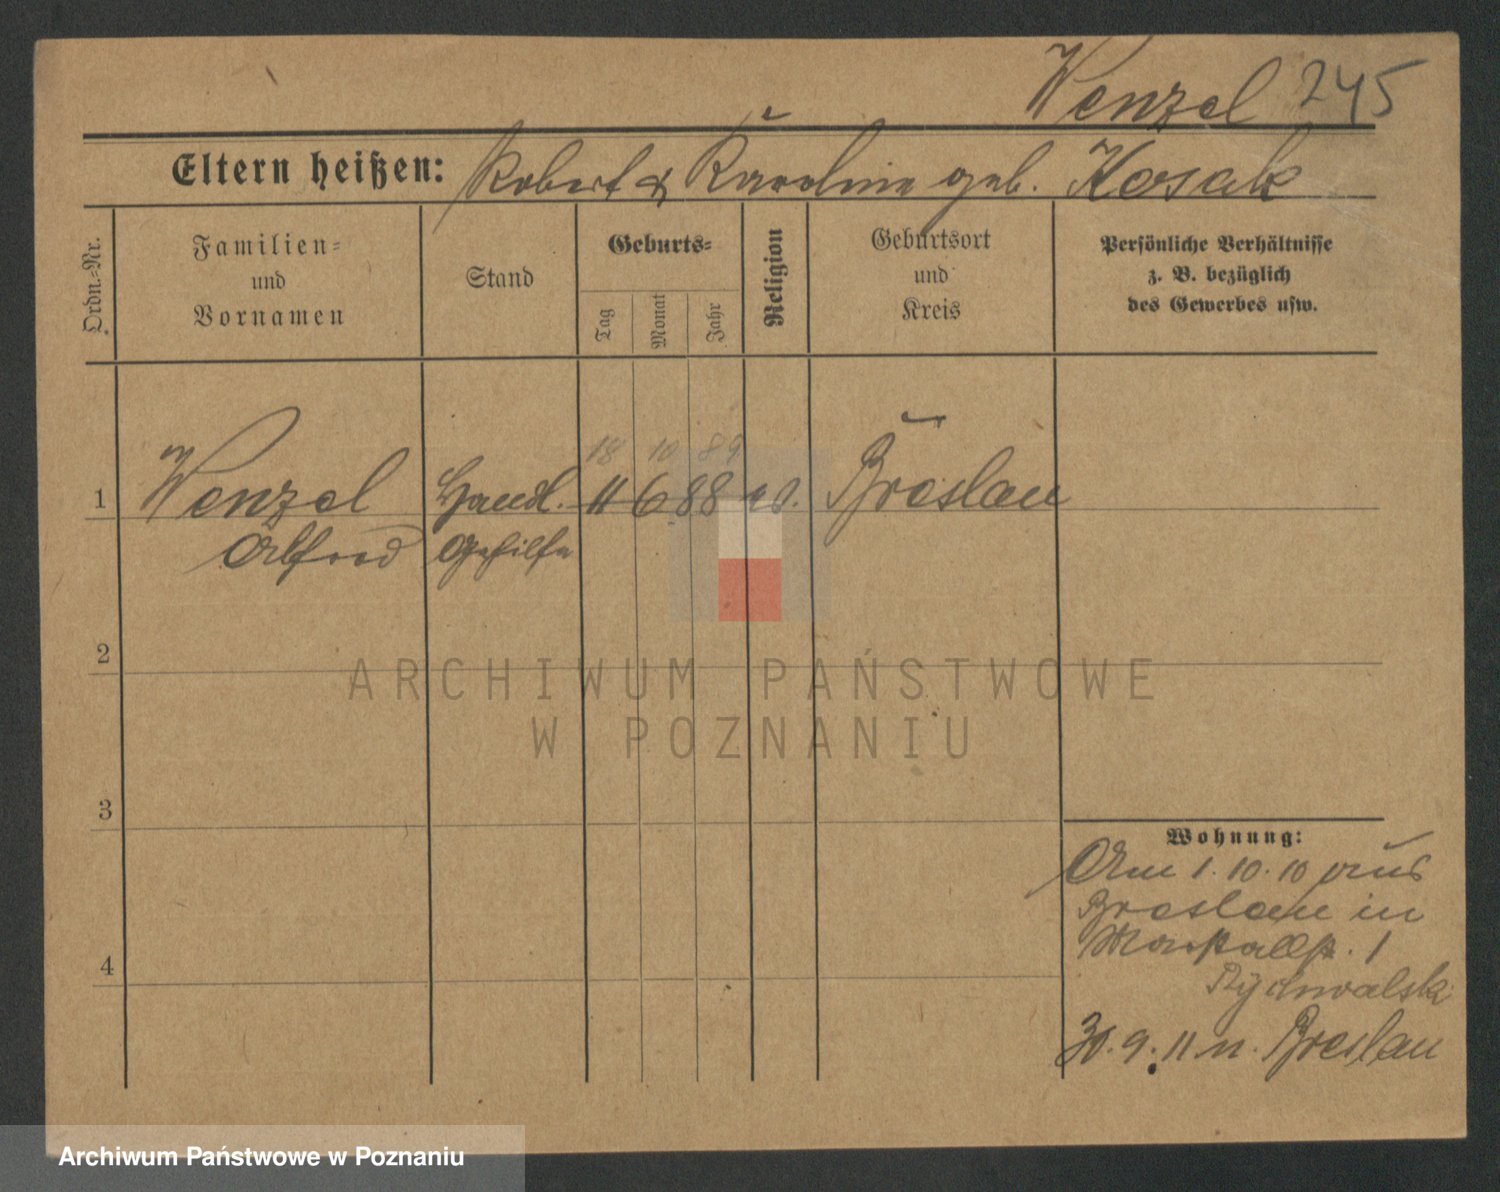 Wenzel 245
Eltern heißen: Robert & Karoline geb. Kosak
Ordn.-Nr.
Familien-
und
Vornamen
Stand
Geburts-
Tag
Monat
Jahr
Religion
Geburtsort
und
Kreis
Persönliche Verhältnisse
z. B. bezüglich
des Gewerbes usw.
18 10 89
1 Wenzel Handl. 11 6 88 ev. Breslau
Alfred Gehilfe
2
3
4
Wohnung:
Am 1.10.10 aus
Breslau in
Marstallstr. 1
Rychwalski
30.9.11 n. Breslau
ARCHIWUM PAŃSTWOWE
W POZNANIU
Archiwum Państwowe w Poznaniu